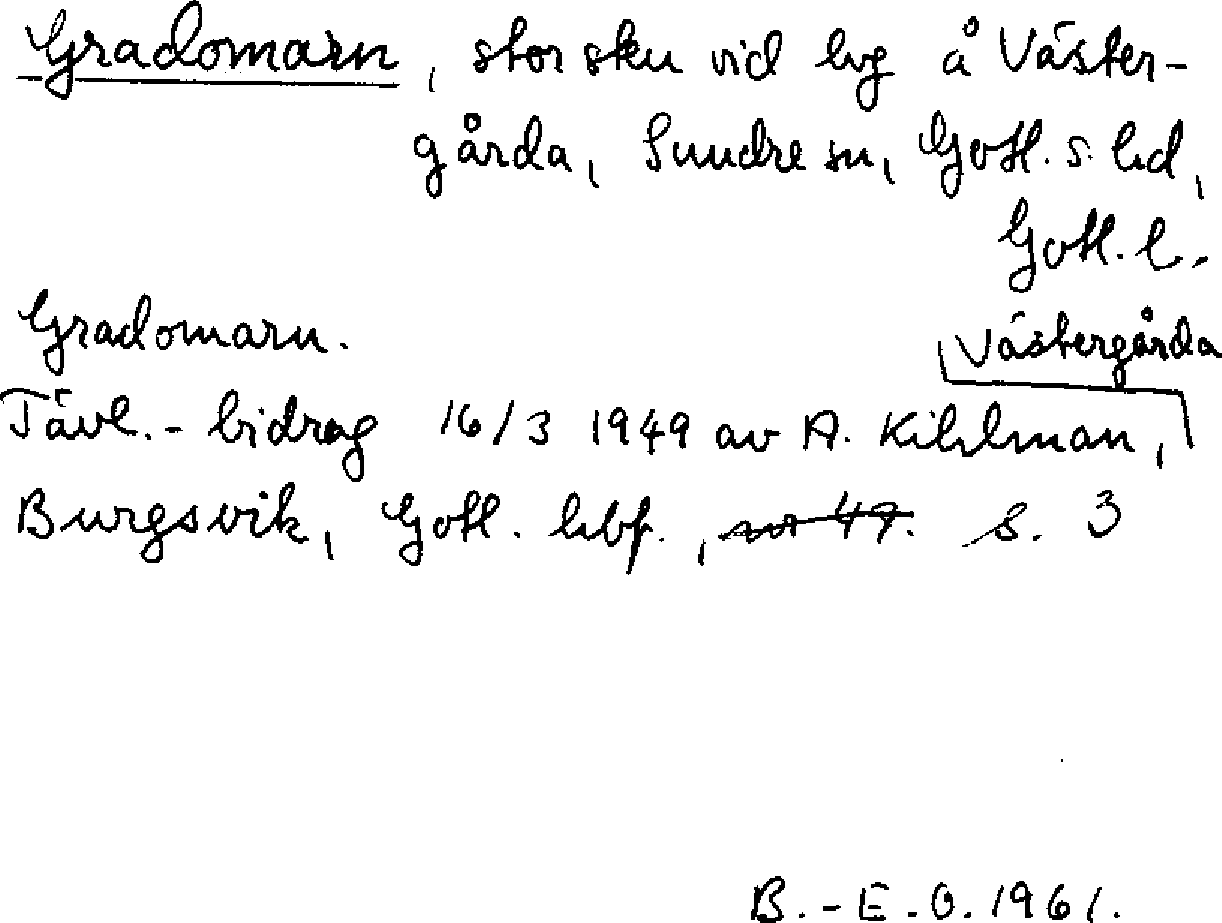 Gradomarn, stor sten vid lvg å Väster-
gårda, Sundre sn, Gotl. s. hd,
Gotl. l.
Gradomarn.
Västergårda
Tävl.-bidrag 16/3 1949 av A. Kihlman,
Burgsvik, Gotl. hbf., nr 47. s. 3
B.-E.O. 1961.